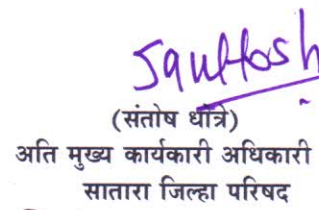 Santosh
(संतोष धोत्रे)
अति मुख्य कार्यकारी अधिकारी
सातारा जिल्हा परिषद